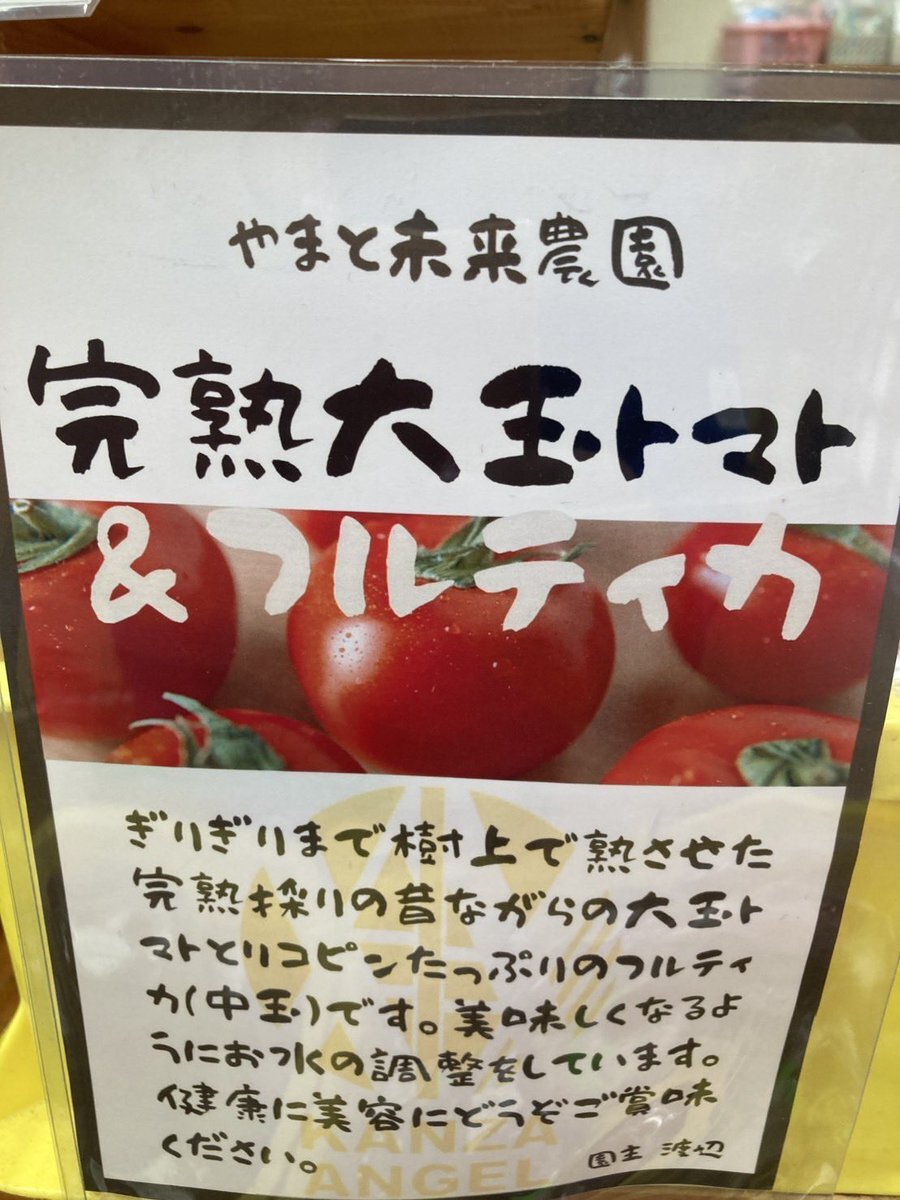 やまと未来農園
完熟大玉トマト
&フルティカ
ぎりぎりまで樹上で熟させた
完熟採りの昔ながらの大玉ト
マトとリコピンたっぷりのフルティ
カ(中玉)です。美味しくなるよ
うにお水の調整をしています。
健康に美容にどうぞご賞味
ください。
園主 渡辺
KANZA
ANGEL